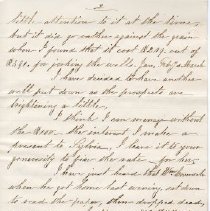 2
little attention to it at the time,
but it did go rather against the grain
when I found that it cost
for jerking the wells Jan, Feb, & March
I have decided to have another
well put down as the prospects are
brightening a little.
I think I can manage without
the the interest I make a
present to Sylvia, I leave it to your
generosity to give the rate for her,
I have just heard that Wm
when he got home last evening, sat down
to read the paper, then dropped dead,